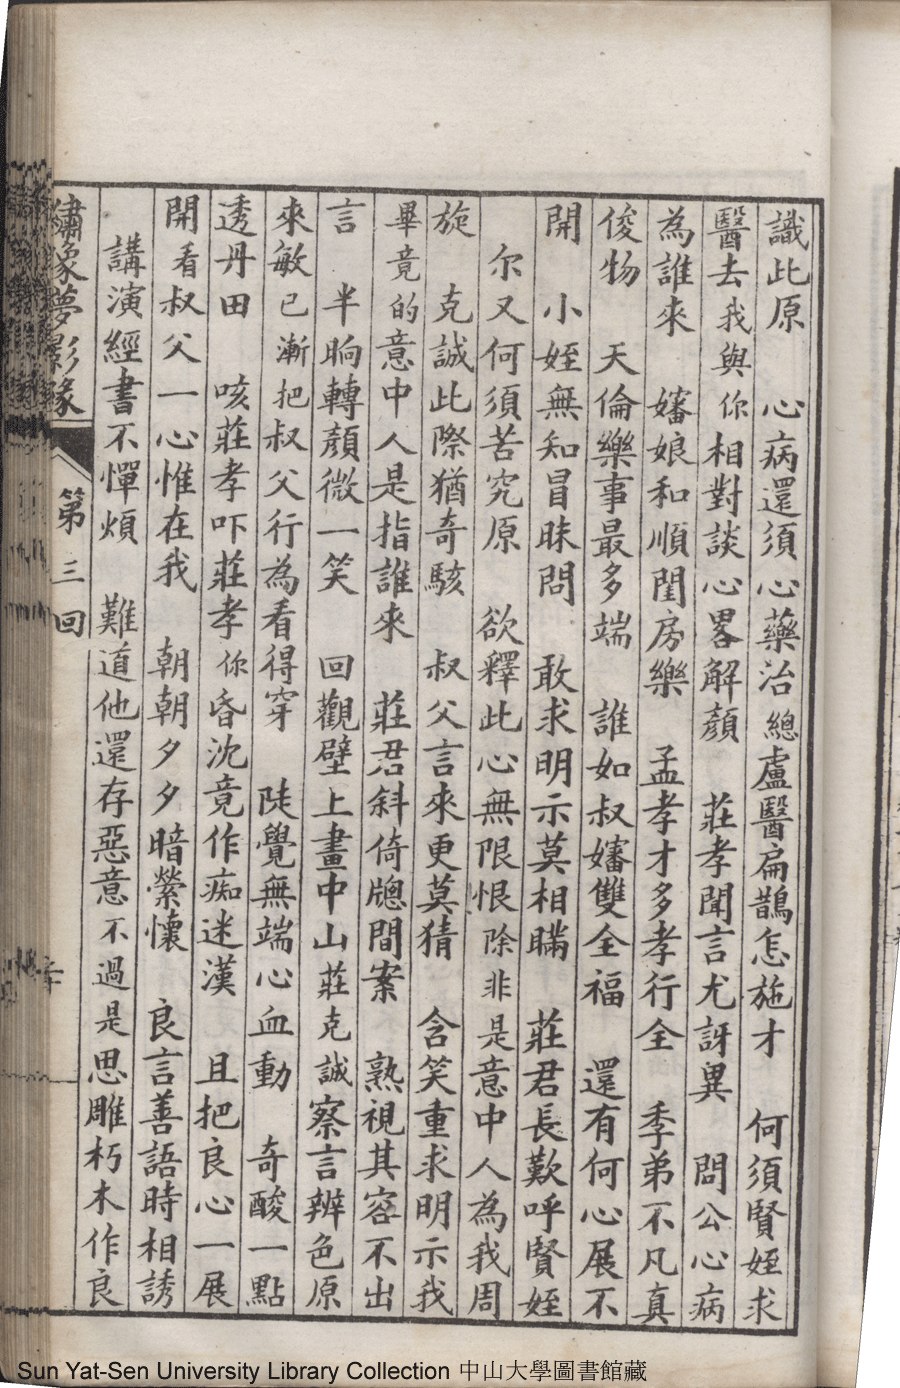 識此原　心病還須心藥治總盧醫扁鵲怎施才　何須賢姪求
醫去我與你相對談心畧解顏　莊孝聞言尤訝異　問公心病
為誰來　嬸娘和順閨房樂　孟孝才多孝行全　季弟不凡真
俊物　天倫樂事最多端　誰如叔嬸雙全福　還有何心展不
開　小姪無知冒昧問　敢求明示莫相瞞　莊君長歎呼賢姪
尔又何須苦究原　欲釋此心無限恨除非是意中人為我周
旋　克誠此際猶奇駭　叔父言來更莫猜　含笑重求明示我
畢竟的意中人是指誰來　莊君斜倚牕間案　熟視其容不出
言　半晌轉顏微一笑　回觀壁上畫中山莊克誠察言辨色原
來敏已漸把叔父行為看得穿　陡覺無端心血動　奇酸一點
透丹田　咳莊孝吓莊孝你昏沈竟作痴迷漢　且把良心一展
開看叔父一心惟在我　朝朝夕夕暗縈懷　良言善語時相誘
講演經書不憚煩　難道他還存惡意不過是思雕朽木作良
繡像夢影緣　第三回
Sun Yat-Sen University Library Collection 中山大學圖書館藏